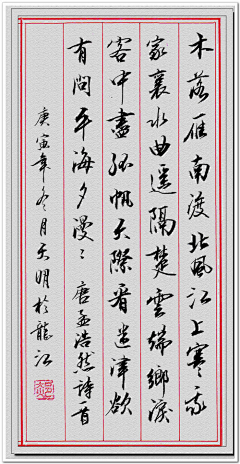 木落雁南渡北風江上寒我
家襄水曲遙隔楚雲端鄉淚
客中盡孤帆天際看迷津欲
有問平海夕漫〻唐孟浩然詩一首
庚寅年冬月天明於龍江